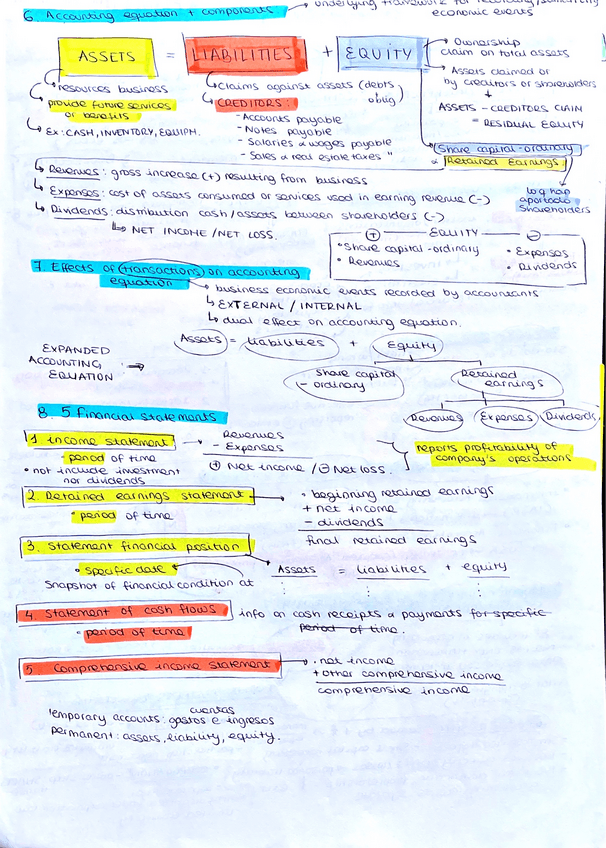 6. Accounting equation + components → underlying framework for recording/
economic events
ASSETS = LIABILITIES + EQUITY
→ Ownership
claim on total assets
→ Assets claimed or
by creditors or shareholders
↓
ASSETS - CREDITORS CLAIM
= RESIDUAL EQUITY
↳ resources business
↳ provide future services
or benefits
↳ Ex: CASH, INVENTORY, EQUIPM.
↳ Claims against assets (debts
oblig)
↳ CREDITORS:
- Accounts payable
- Notes payable
- Salaries & wages payable
- Sales & real estate taxes "
Share capital-ordinary
& Retained Earnings
lo q han
aportado
Shareholders
↳ Revenues: gross increase (+) resulting from business
↳ Expenses: cost of assets consumed or services used in earning revenue (-)
↳ Dividends: distribution cash/assets between shareholders (-)
↳ NET INCOME / NET LOSS.
+ EQUITY -
• Share capital-ordinary
• Revenues
• Expenses
• Dividends
7. Effects of transactions on accounting
equation
↳ business economic events recorded by accountants
↳ EXTERNAL / INTERNAL
↳ dual effect on accounting equation.
EXPANDED
ACCOUNTING
EQUATION →
Assets = liabilities + Equity
Share capital
- ordinary
Retained
earnings
Revenues Expenses Dividends
8. 5 Financial statements
1 income statement → Revenues
- Expenses
+ Net income / - Net loss.
reports profitability of
company's operations
period of time
• not include investment
nor dividends
2. Retained earnings statement
• period of time
• beginning retained earnings
+ net income
- dividends
final retained earnings
3. Statement financial position
• specific date
Snapshot of financial condition at
Assets = liabilities + equity
4. Statement of cash flows info on cash receipts & payments for specific
period of time.
• period of time
5. Comprehensive income statement → • net income
+ other comprehensive income
comprehensive income
cuentas
Temporary accounts: gastos e ingresos
Permanent: assets, liability, equity.